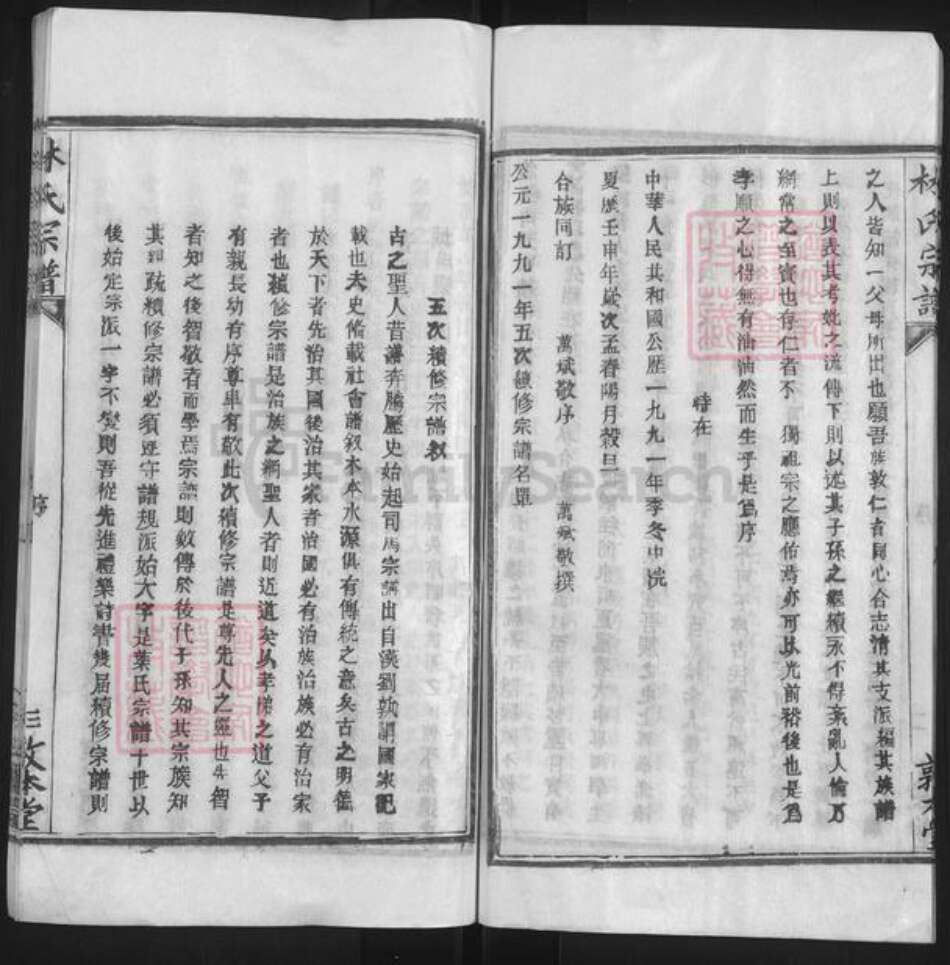 之人皆知一父母所出也願吾族敦仁者同心合志清其支派編其族譜
上則以表其考妣之流傳下則以述其子孫之繼續永不得紊亂人倫乃
綱常之至寶也存仁者不 獨祖宗之應佑焉亦可以光前裕後也是爲
孝順之心得無有油油然而生乎是爲序
時在
中華人民共和國公歷一九九一年季冬中浣
夏歷壬申年歲次孟春陽月穀旦
合族同訂 萬斌敬序 萬斌敬撰
公元一九九一年五次續修宗譜名單
林氏宗譜
五次續修宗譜敘
古之聖人昔濤奔騰歷史始起司馬宗譜出自漢劉執謂國家記
載也夫史脩載社會譜敘木本水源俱有傳統之意矣古之明德
於天下者先治其國後治其家者治國必有治族治族必有治家
者也續修宗譜是治族之綱聖人者則近道矣以孝悌之道父子
有親長幼有序尊卑有敬此次續修宗譜是尊先人之靈也先智
者知之後智敬者而學焉宗譜則敘傳於後代子孫知其宗族知
其親疏續修宗譜必須遵守譜規派始大字是葉氏宗譜十世以
後始定宗派一字不變則吾從先進禮樂詩書幾屆積修宗譜則
林氏宗譜
序
三
敦本堂
FamilySearch